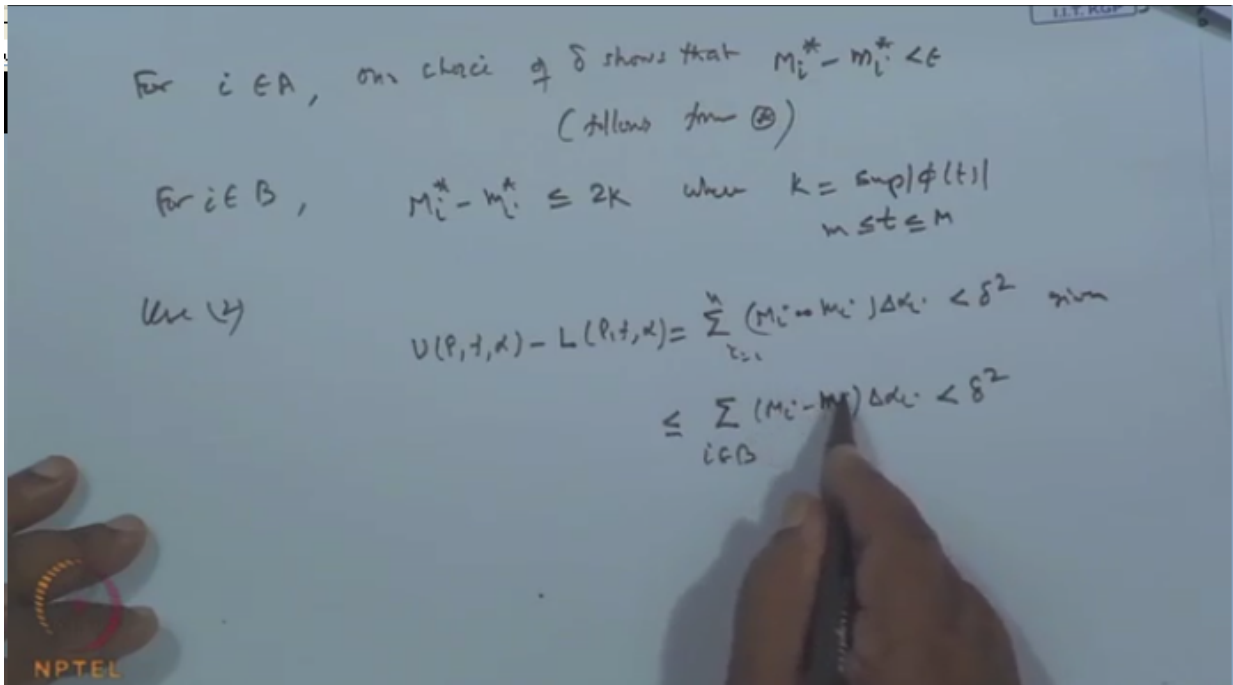 I.I.T. KGP
For i ∈ A, our choice of δ shows that Mi* - mi* < ε
(follows from ⊛)
For i ∈ B, Mi* - mi* ≤ 2K where K = sup|φ(t)|
m ≤ t ≤ M
Use (2)
U(P,f,α) - L(P,f,α) = Σ (Mi - mi) Δαi < δ² given
n
i=1
≤ Σ (Mi - m) Δαi < δ²
i∈B
NPTEL